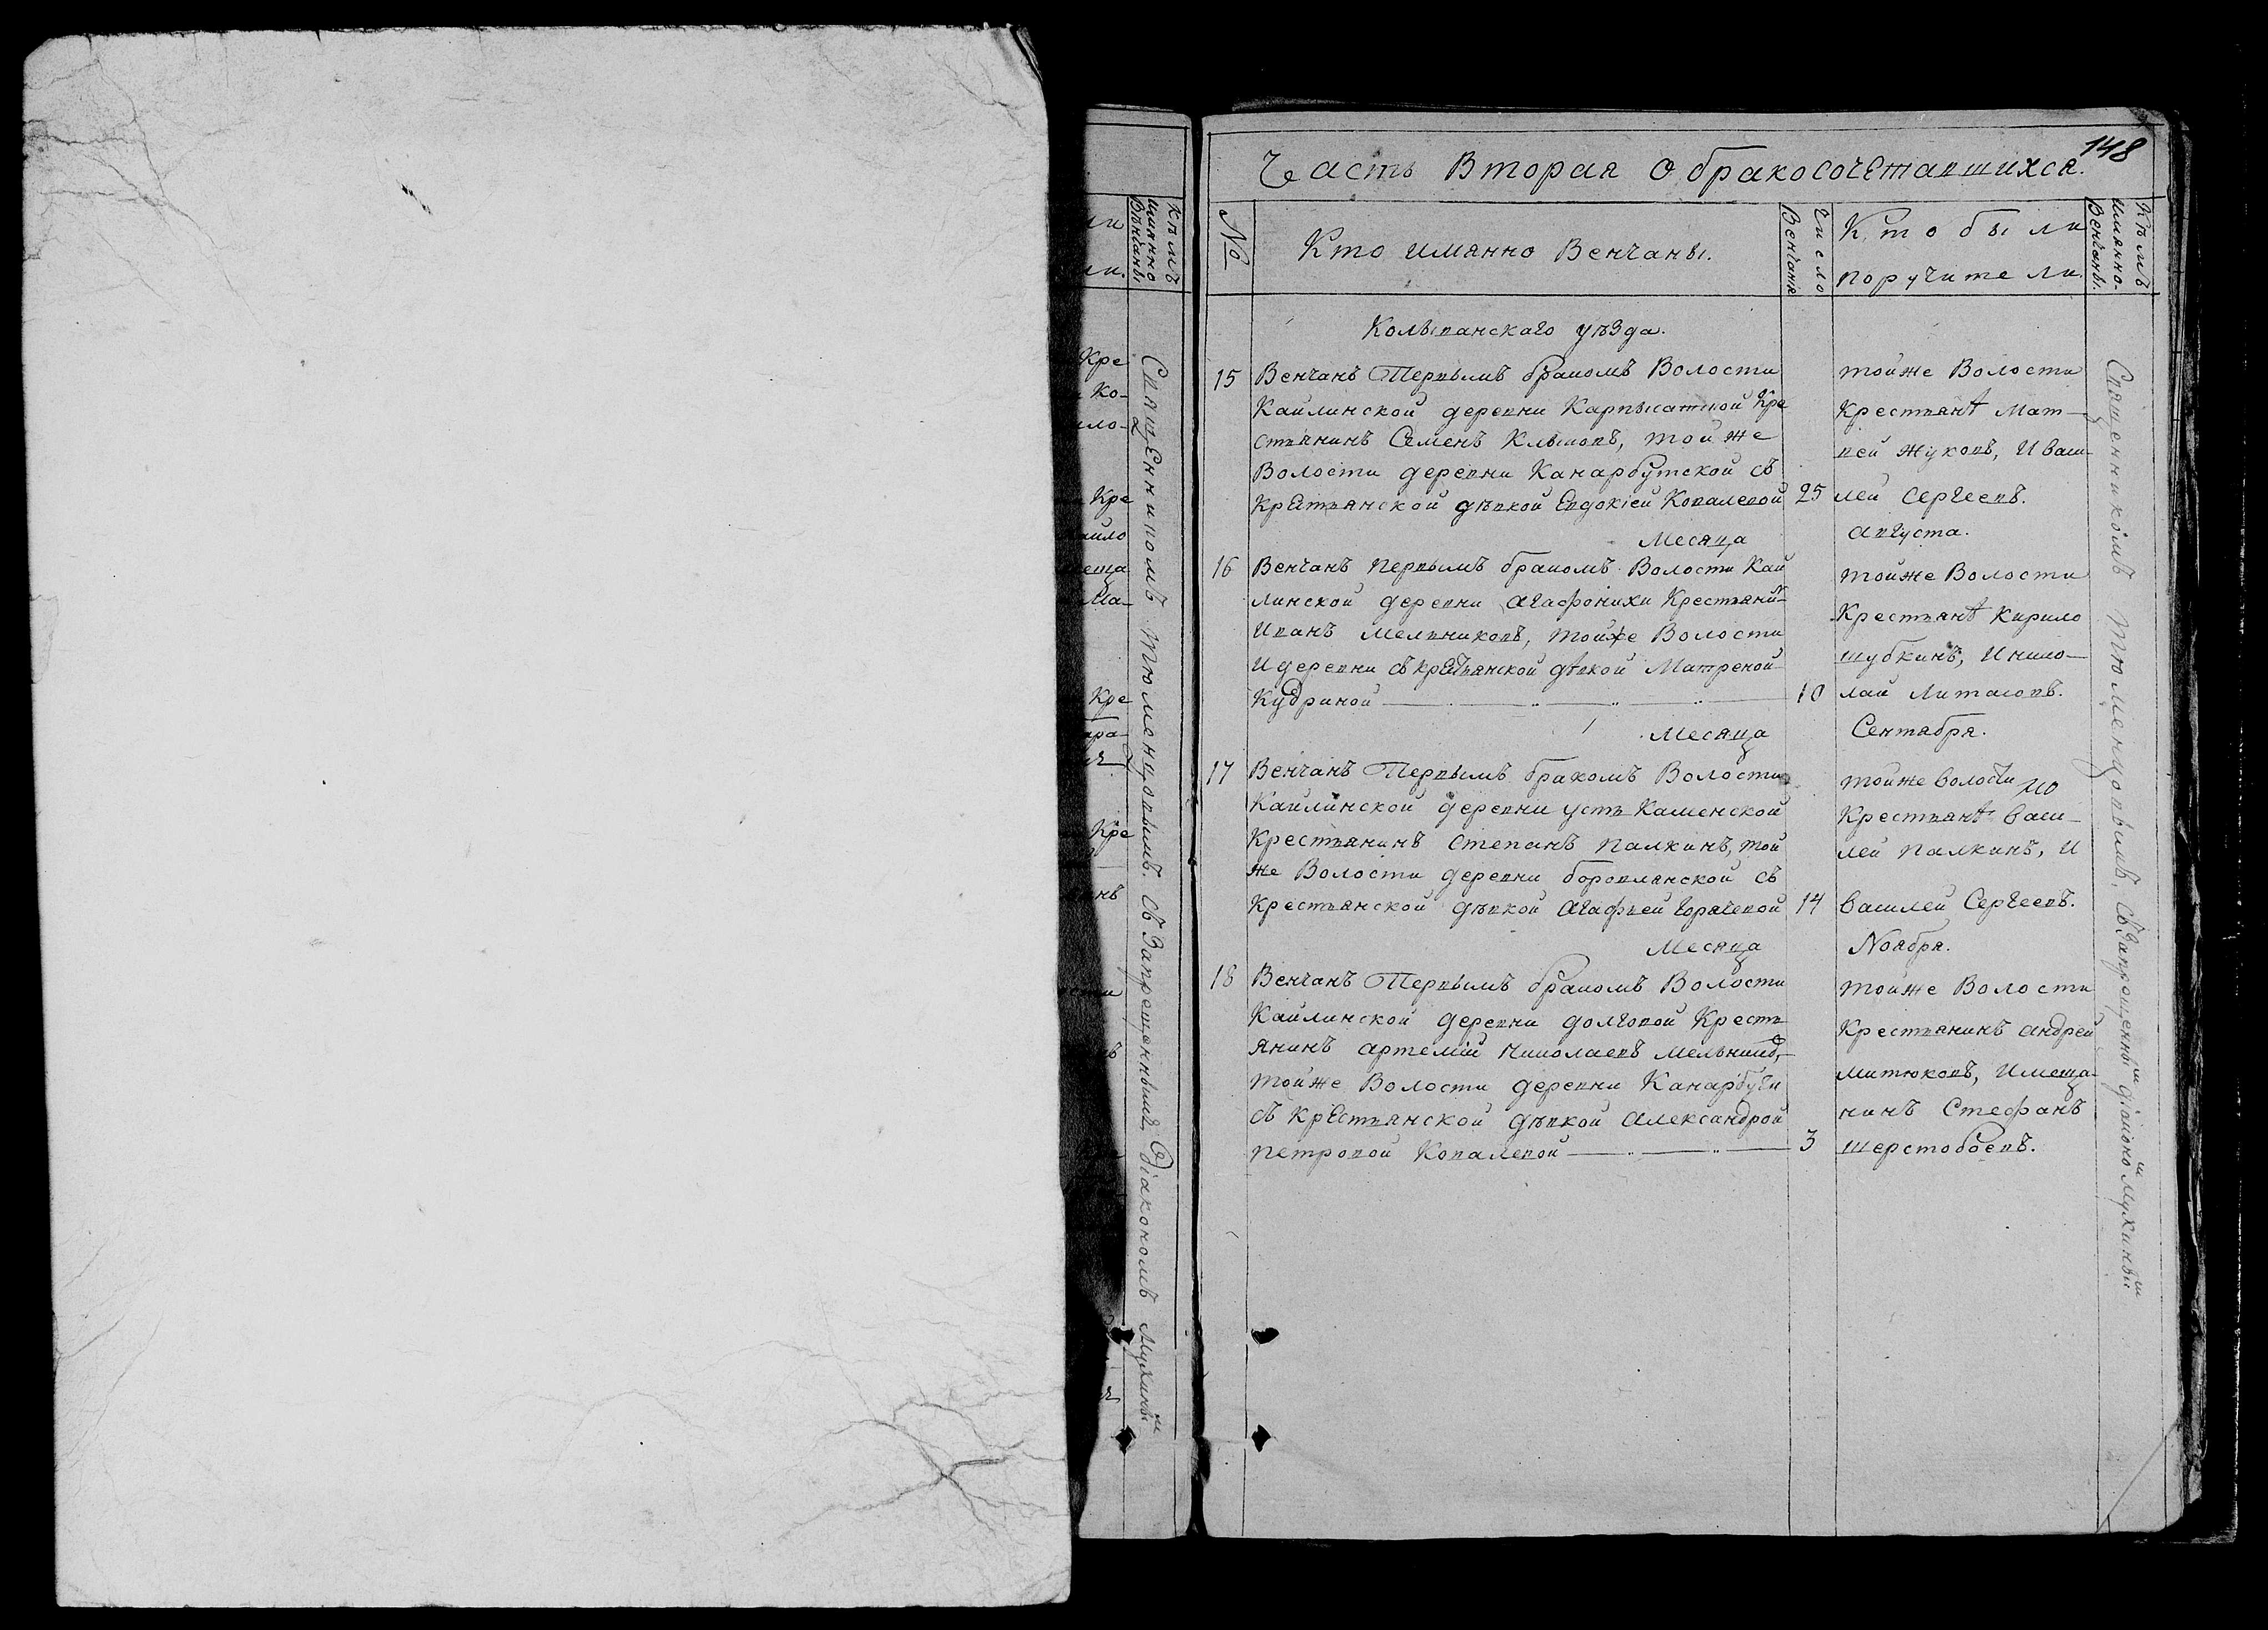 148
Часть Вторая о бракосочетавшихся.
№
Кто имянно Венчаны.
Число
Венчания
Кто были
поручители.
Кѣмъ
имянно
Венчаны.
Колыванскаго уѣзда.
15 Венчанъ Первымъ бракомъ Волости
Кайлинской деревни Карпысатной Кре
стьянинъ Семенъ Клыковъ, той же
Волости деревни Канарбутской съ
Крестьянской дѣвкой Евдокіей Ковалевой
25
тойже Волости
Крестьянѣ Мат-
вей Жуковъ, И Васи-
лей Сергеевъ.
Месяца Августа.
16 Венчанъ первымъ бракомъ Волости Кай
линской деревни Агафонихи Крестьянинъ
Иванъ Мельниковъ, тойже Волости
И деревни съ крестьянской дѣвкой Матреной
Кудриной
10
тойже Волости
Крестьянѣ Кирило
шубкинъ, Никло-
лай Литасовъ.
Месяца Сентября.
17 Венчанъ Первымъ бракомъ Волости
Кайлинской деревни усть Каменской
Крестьянинъ Степанъ Палкинъ, той
же Волости деревни боровлянской съ
Крестьянской дѣвкой Агафьей Горачевой
14
тойже волости
Крестьянѣ Васи-
лей Палкинъ, И
Василей Сергеевъ.
Месяца Ноября.
18 Венчанъ Первымъ бракомъ Волости
Кайлинской деревни долговой Кресть
янинъ артемій Николаевъ Мельниковъ,
тойже Волости деревни Канарбуги
съ Крестьянской дѣвкой Александрой
Петровой Ковалевой
3
тойже Волости
Крестьянинъ андрей
митюковъ, И меща-
нинъ Стефанъ
шерстобоевъ.
Священникомъ Тюменцовымъ, съ Запрещеннымъ діакономъ Мухинымъ
Кѣмъ
имянно
Вѣнчаны
Священникомъ Тюменцовымъ. съ Запрещеннымъ діакономъ Мухинымъ